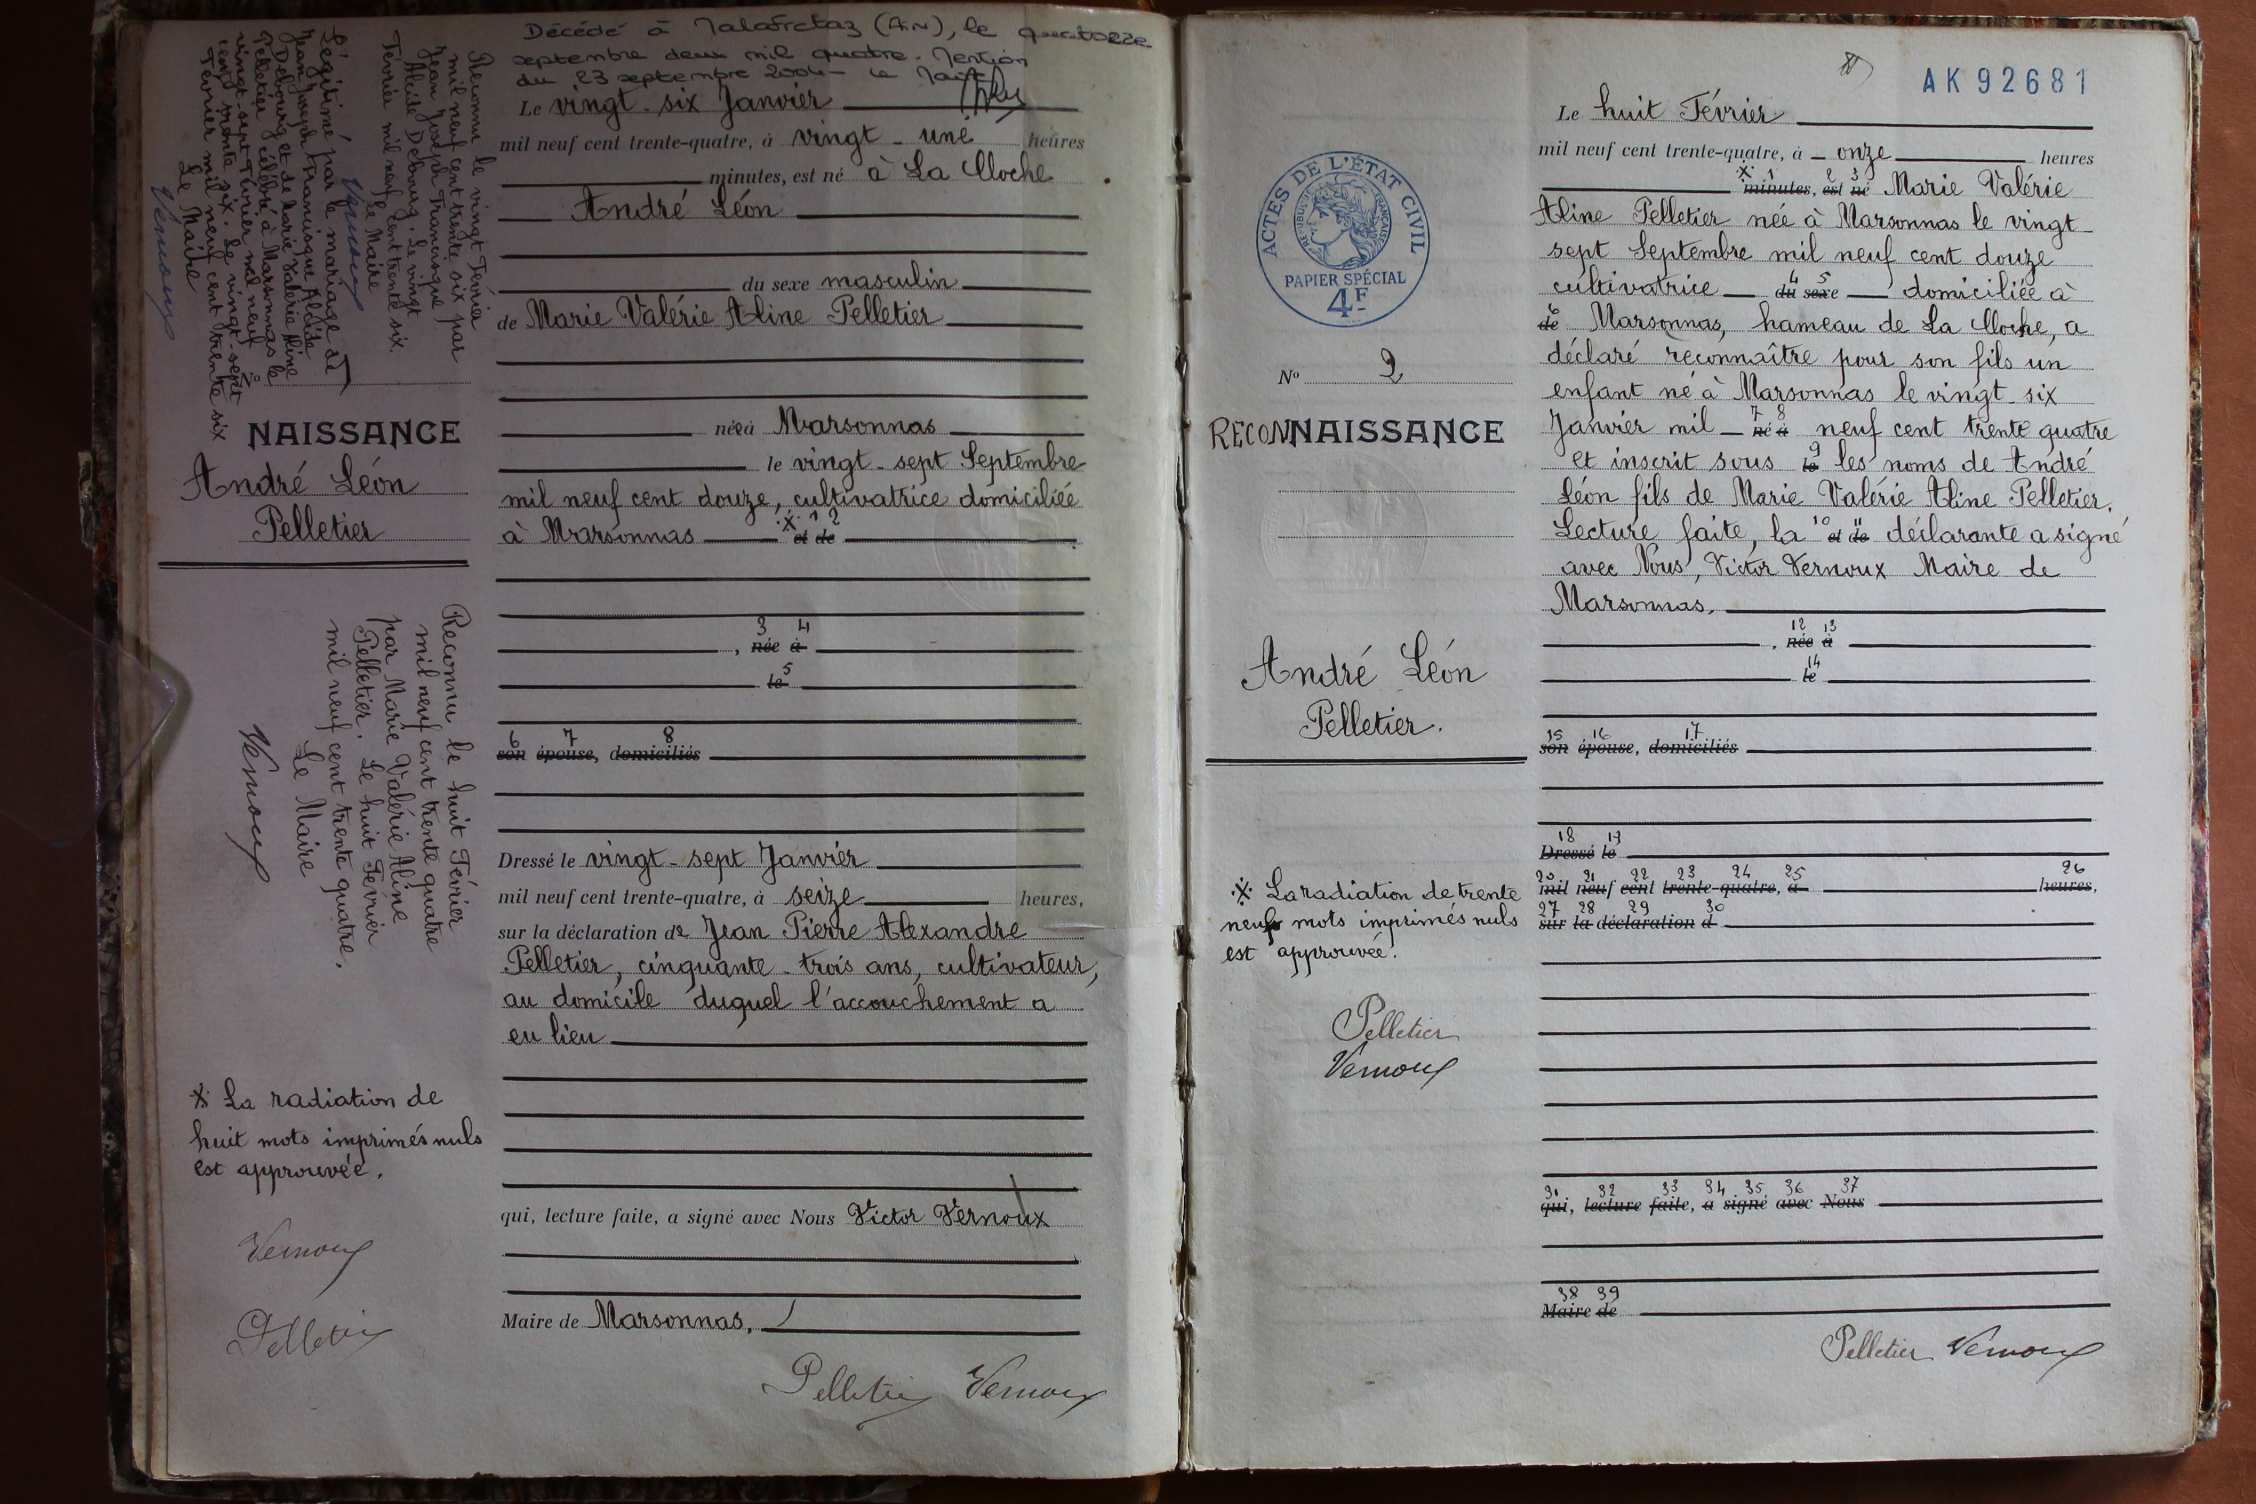 Décédé à Malafretaz (Ain), le quatorze
septembre deux mil quatre. Mention
du 23 septembre 2004 - Le Maire
Reconnu le vingt Février
mil neuf cent trente six par
Jean Joseph Francisque
Alcide Debourg. Le vingt
Février mil neuf cent trente six.
Le Maire
Vernoux
Légitimé par le mariage de
Jean Joseph Francisque Alcide
Debourg et de Marie Valérie Aline
Pelletier célébré à Marsonnas le
vingt-sept Février mil neuf
cent trente six. Le vingt-sept
Février mil neuf cent trente six
Le Maire
Vernoux
NAISSANCE
André Léon
Pelletier
Reconnu le huit Février
mil neuf cent trente quatre
par Marie Valérie Aline
Pelletier. Le huit Février
mil neuf cent trente quatre.
Le Maire
Vernoux
※ La radiation de
huit mots imprimés nuls
est approuvée.
Vernoux
Pelletier
Le vingt-six Janvier
mil neuf cent trente-quatre, à vingt-une heures
minutes, est né à La Cloche
André Léon
du sexe masculin
de Marie Valérie Aline Pelletier
née à Marsonnas
le vingt-sept Septembre
mil neuf cent douze, cultivatrice domiciliée
à Marsonnas ※ 1 2 et de
3 4
, née à
le 5
6 7 8
son épouse, domiciliés
Dressé le vingt-sept Janvier
mil neuf cent trente-quatre, à seize heures,
sur la déclaration de Jean Pierre Alexandre
Pelletier, cinquante-trois ans, cultivateur,
au domicile duquel l'accouchement a
eu lieu
qui, lecture faite, a signé avec Nous Victor Vernoux
Maire de Marsonnas.
Pelletier Vernoux
AK 92681
ACTES DE L'ÉTAT CIVIL
RÉPUBLIQUE FRANÇAISE
PAPIER SPÉCIAL
4F
No 2
RECONNAISSANCE
André Léon
Pelletier.
※ La radiation de trente
neuf mots imprimés nuls
est approuvée.
Pelletier
Vernoux
Le huit Février
mil neuf cent trente-quatre, à onze heures
※ 1 2 3
minutes, est né Marie Valérie
Aline Pelletier née à Marsonnas le vingt-
sept Septembre mil neuf cent douze
4 5
cultivatrice du sexe domiciliée à
6
de Marsonnas, hameau de La Cloche, a
déclaré reconnaître pour son fils un
enfant né à Marsonnas le vingt-six
7 8
Janvier mil né à neuf cent trente quatre
9
et inscrit sous le les noms de André
Léon fils de Marie Valérie Aline Pelletier.
10 11
Lecture faite, la et de déclarante a signé
avec Nous, Victor Vernoux Maire de
Marsonnas.
12 13
, née à
14
le
15 16 17
son épouse, domiciliés
18 19
Dressé le
20 21 22 23 24 25 26
mil neuf cent trente-quatre, à heures,
27 28 29 30
sur la déclaration d
31 32 33 34 35 36 37
qui, lecture faite, a signé avec Nous
38 39
Maire de
Pelletier Vernoux